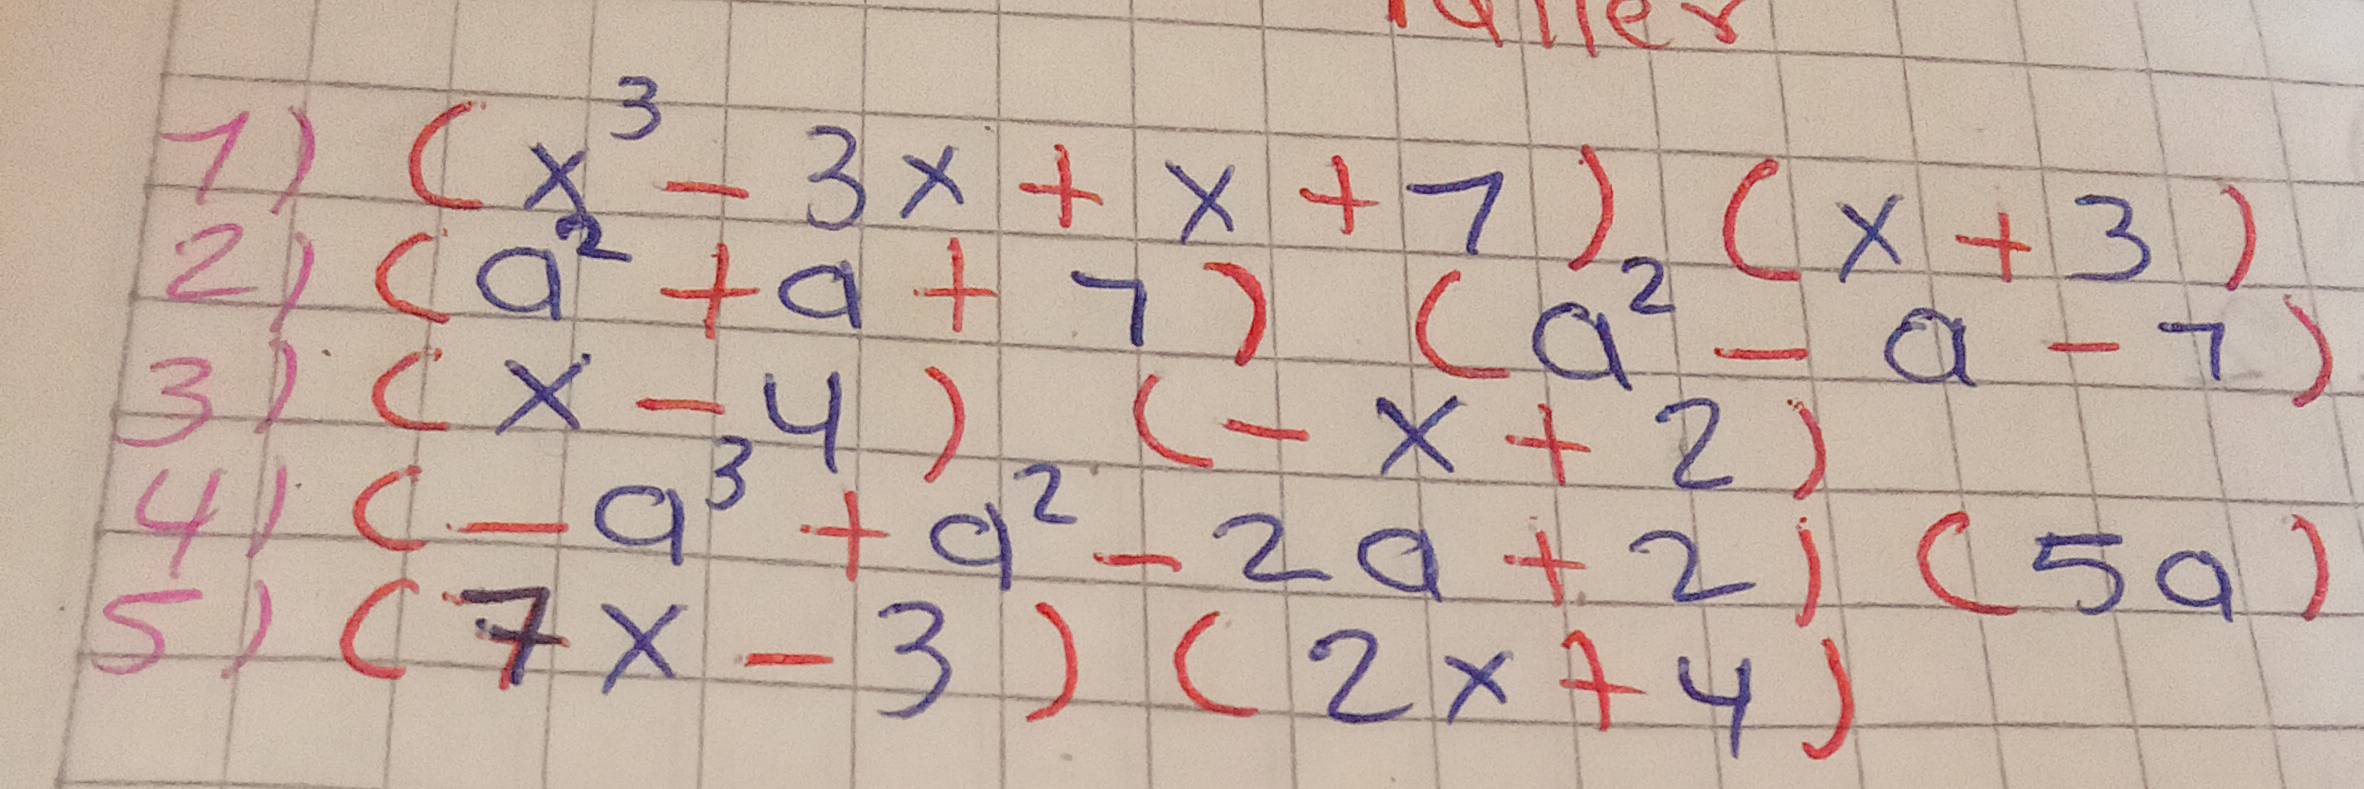 Taller
1) (x³ - 3x + x + 1) (x + 3)
2) (a² + a + 1) (a² - a - 1)
3) (x - 4) (- x + 2)
4) (- a³ + a² - 2a + 2) (5a)
5) (7x - 3) (2x + 4)